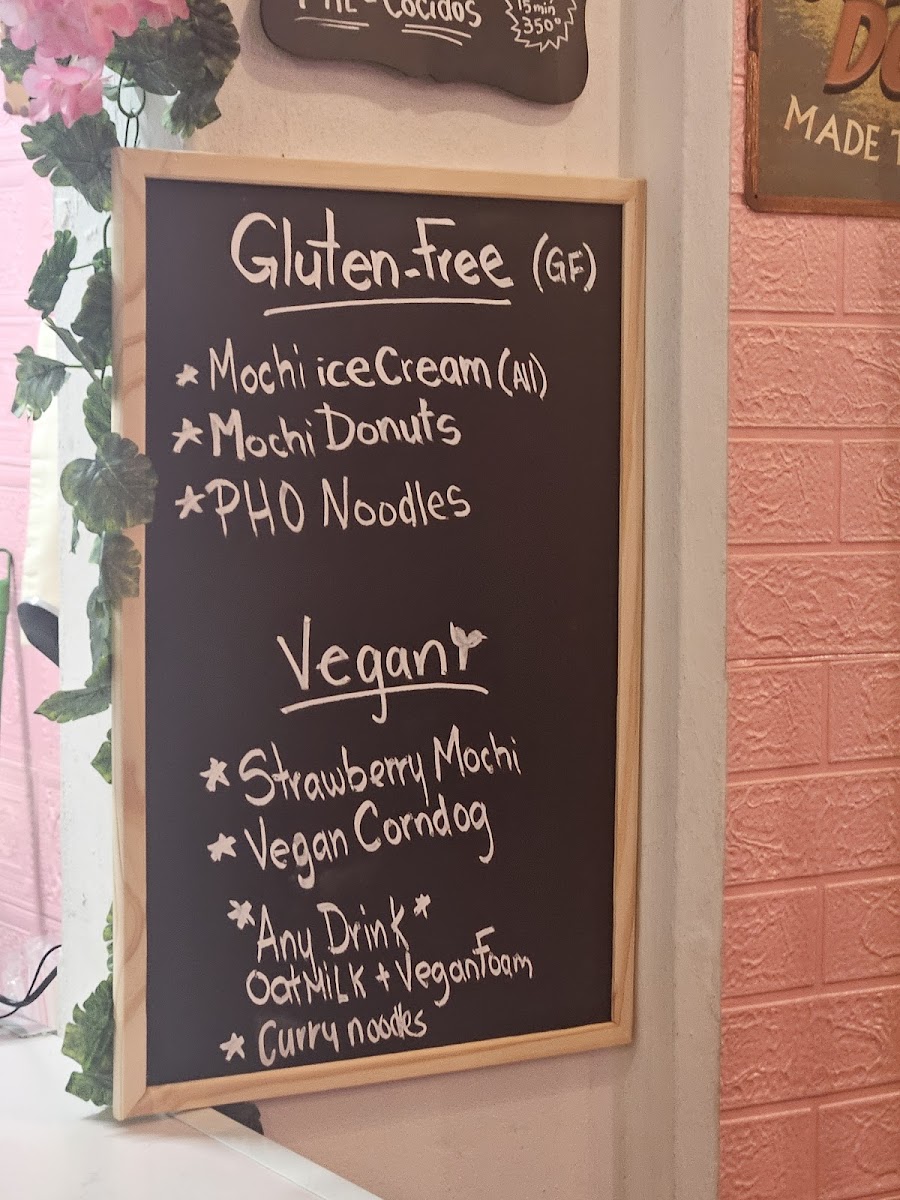 PRE-Cocidos
15min
350°
MADE
Gluten-Free (GF)
* Mochi ice Cream (All)
* Mochi Donuts
* PHO Noodles
Vegan
* Strawberry Mochi
* Vegan Corndog
* Any Drink *
OatMILK + Vegan Foam
* Curry noodles